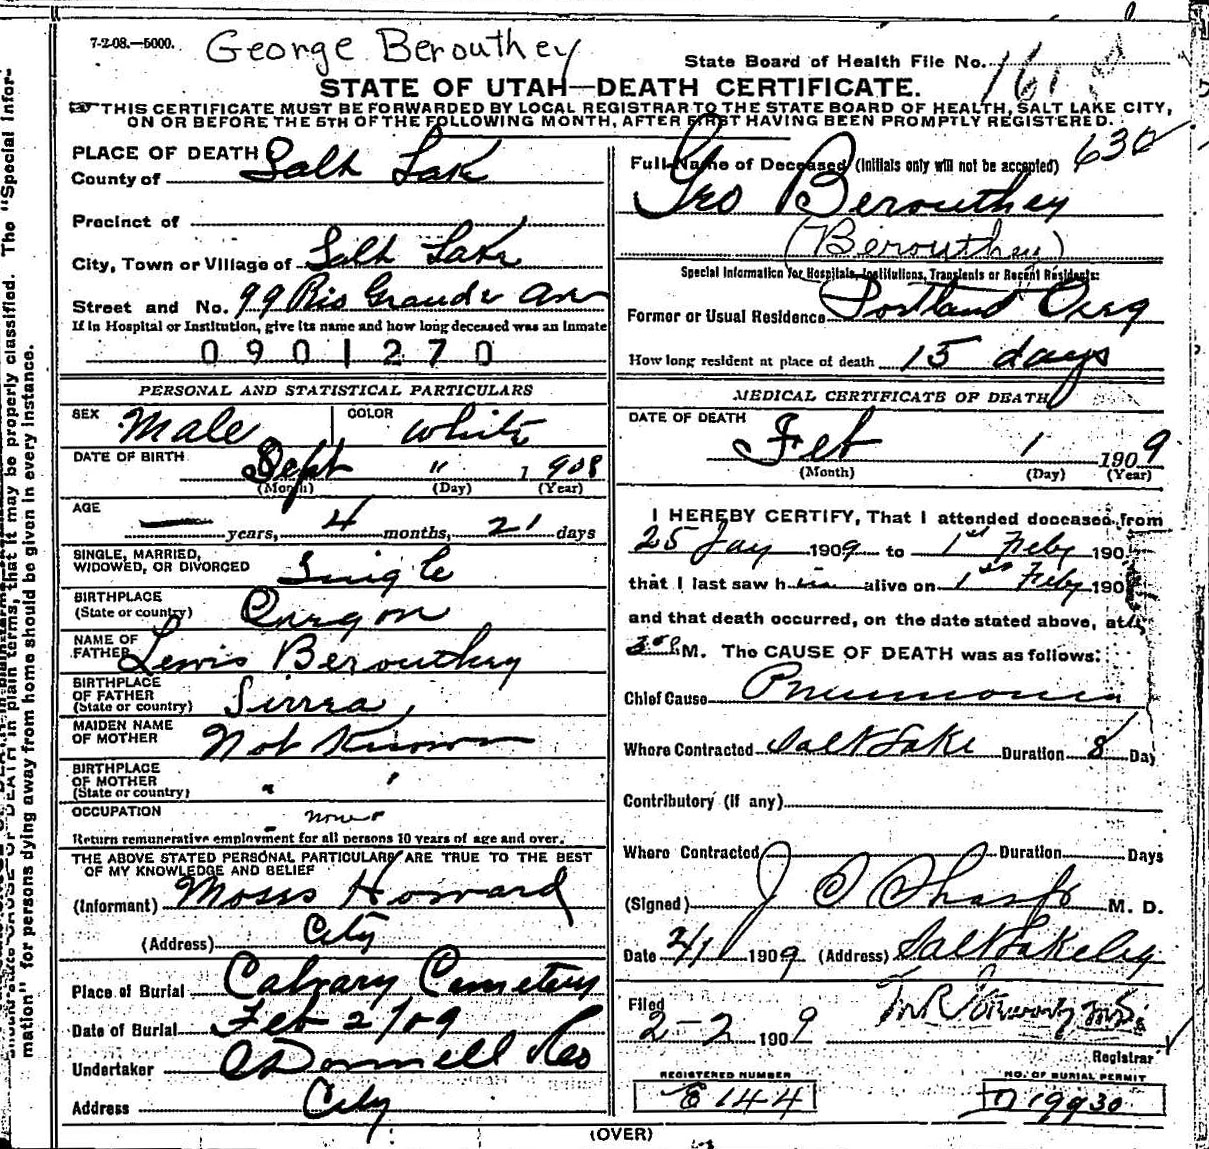 7-2-08.—5000. George Berouthey
State Board of Health File No. 161
STATE OF UTAH—DEATH CERTIFICATE.
THIS CERTIFICATE MUST BE FORWARDED BY LOCAL REGISTRAR TO THE STATE BOARD OF HEALTH, SALT LAKE CITY,
ON OR BEFORE THE 5TH OF THE FOLLOWING MONTH, AFTER FIRST HAVING BEEN PROMPTLY REGISTERED.
630
PLACE OF DEATH
County of Salt Lake
Precinct of
City, Town or Village of Salt Lake
Street and No. 99 Rio Grande Ave
If in Hospital or Institution, give its name and how long deceased was an Inmate
0901270
PERSONAL AND STATISTICAL PARTICULARS
SEX Male COLOR White
DATE OF BIRTH Sept " 1908
(Month) (Day) (Year)
AGE
— years, 4 months, 21 days
SINGLE, MARRIED,
WIDOWED, OR DIVORCED Single
BIRTHPLACE
(State or country) Oregon
NAME OF
FATHER Lewis Berouthey
BIRTHPLACE
OF FATHER
(State or country) Sirrea
MAIDEN NAME
OF MOTHER Not Known
BIRTHPLACE
OF MOTHER
(State or country) " "
OCCUPATION none
Return remunerative employment for all persons 10 years of age and over.
THE ABOVE STATED PERSONAL PARTICULARS ARE TRUE TO THE BEST
OF MY KNOWLEDGE AND BELIEF
(Informant) Moses Howard
(Address) City
Place of Burial Calvary Cemetery
Date of Burial Feb 2/09
Undertaker O'Donnell & Co
Address City
Full Name of Deceased (Initials only will not be accepted)
Geo Berouthey
(Berouthey)
Special Information for Hospitals, Institutions, Transients or Recent Residents:
Former or Usual Residence Portland Oreg
How long resident at place of death 15 days
MEDICAL CERTIFICATE OF DEATH
DATE OF DEATH
Feb 1 1909
(Month) (Day) (Year)
I HEREBY CERTIFY, That I attended deceased from
25 Jay 1909 to 1st Feby 190
that I last saw him alive on 1st Feby 190
and that death occurred, on the date stated above, at
M. The CAUSE OF DEATH was as follows:
Chief Cause Pneumonia
Where Contracted Salt Lake Duration 8 Day
Contributory (if any)
Where Contracted Duration Days
(Signed) J C Sharp M. D.
Date 2/1 1909 (Address) Salt Lake City
Filed
2-2 1909
Registrar
REGISTERED NUMBER
E 144
NO. OF BURIAL PERMIT
D 19930
(OVER)
mation" for persons dying away from home should be given in every instance.